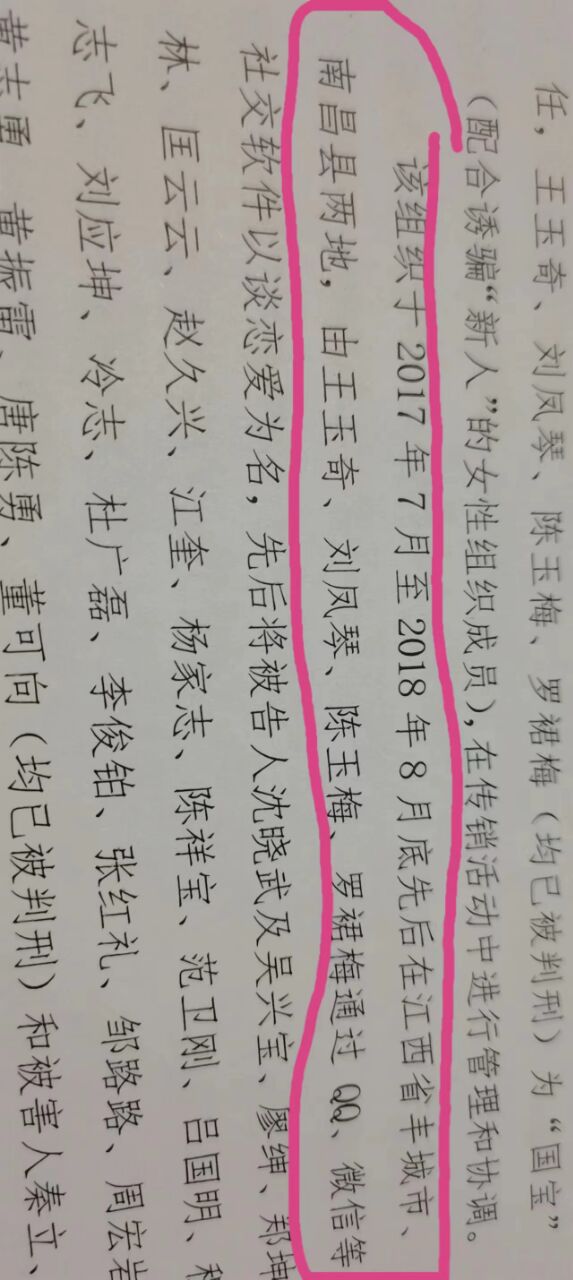 任，王玉奇、刘凤琴、陈玉梅、罗裙梅（均已被判刑）为“国宝”
（配合诱骗“新人”的女性组织成员），在传销活动中进行管理和协调。
该组织于2017年7月至2018年8月底先后在江西省丰城市、
南昌县两地，由王玉奇、刘凤琴、陈玉梅、罗裙梅通过QQ、微信等
社交软件以谈恋爱为名，先后将被告人沈晓武及吴兴宝、廖绅、郑坤
林、匡云云、赵久兴、江奎、杨家志、陈祥宝、范卫刚、吕国明、
志飞、刘应坤、冷志、杜广磊、李俊铂、张红礼、邹路路、周宏岩
黄志勇、黄振雷、唐陈勇、董可向（均已被判刑）和被害人秦立、